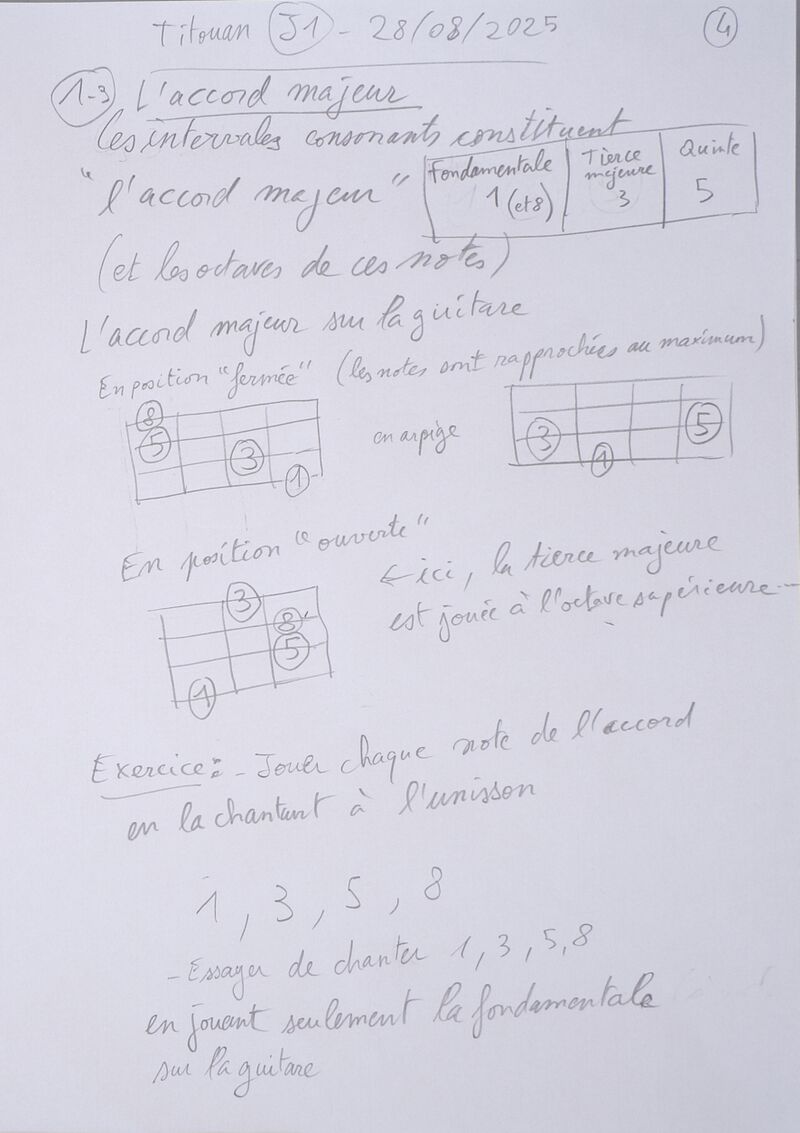 Titouan J1 - 28/08/2025 4
1-3 L'accord majeur
Les intervales consonants constituent
"l'accord majeur" Fondamentale 1 (et 8) Tierce majeure 3 Quinte 5
(et les octaves de ces notes)
L'accord majeur sur la guitare
En position "fermée" (les notes sont rapprochées au maximum)
8
5
3
1
en arpège
3
1
5
En position "ouverte"
← ici, la tierce majeure
est jouée à l'octave supérieure
3
8
5
1
Exercice: - Jouer chaque note de l'accord
en la chantant à l'unisson
1, 3, 5, 8
- Essayer de chanter 1, 3, 5, 8
en jouant seulement la fondamentale
sur la guitare